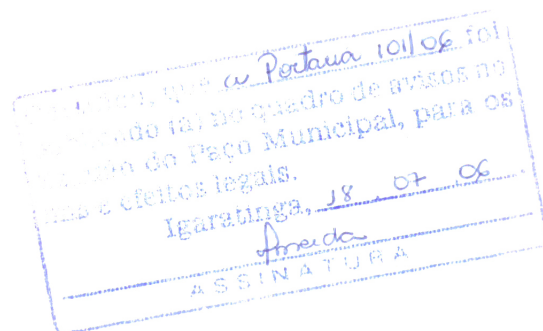 que a Portaria 101/06 foi
do (a) no quadro de avisos no
do Paço Municipal, para os
e efeitos legais.
Igaratinga, 18 . 07 06
Almeida
ASSINATURA